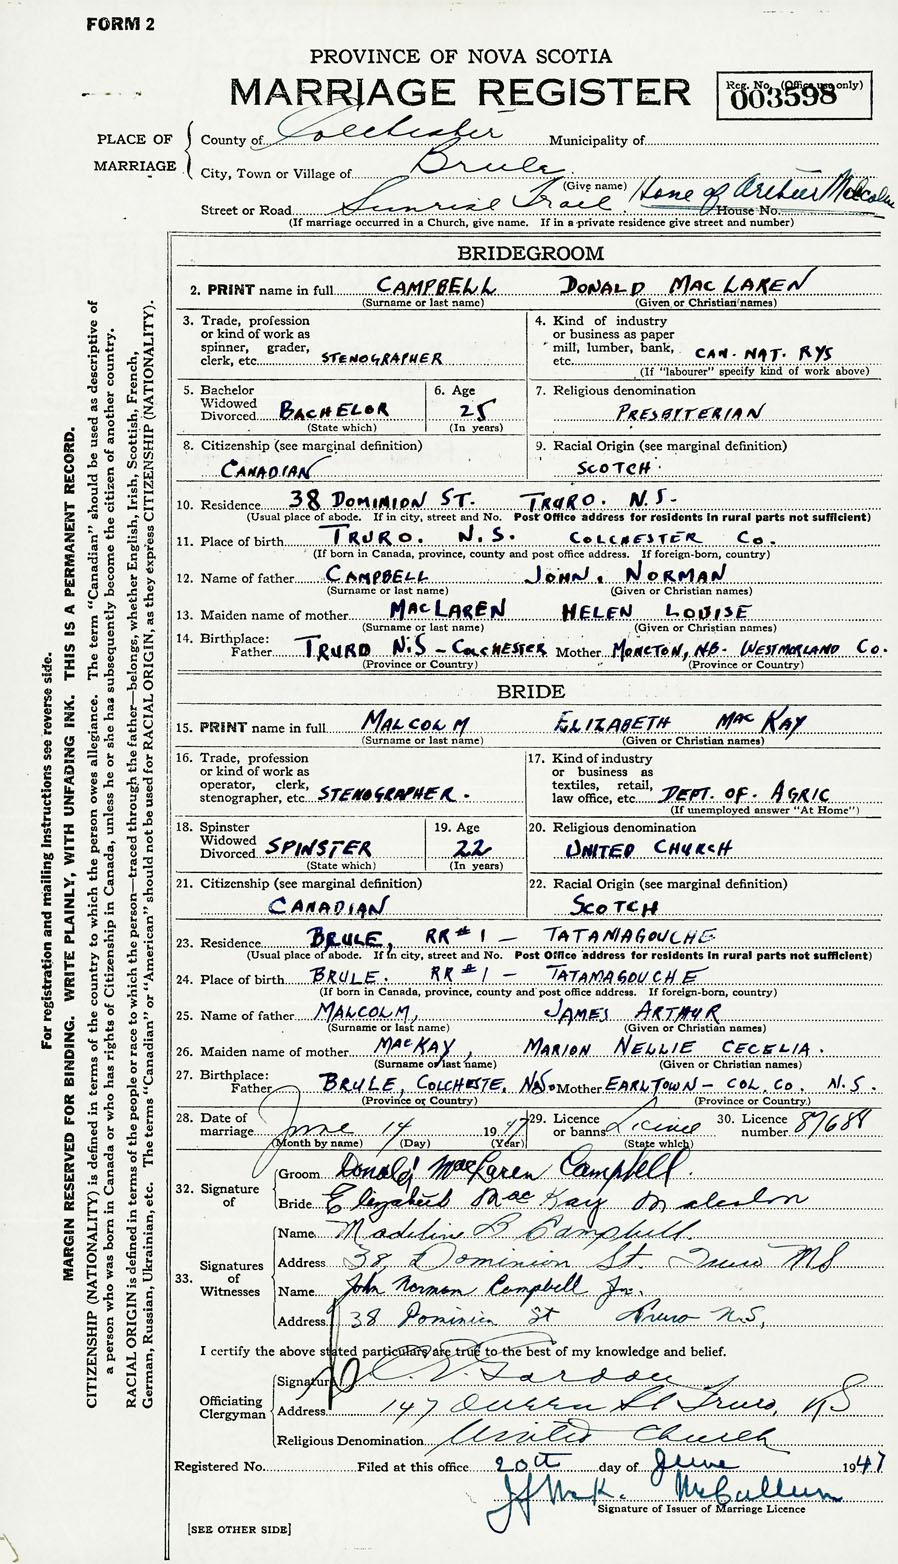 FORM 2
PROVINCE OF NOVA SCOTIA
MARRIAGE REGISTER
Reg. No. (Office use only)
003598
PLACE OF MARRIAGE
County of Colchester Municipality of
City, Town or Village of Brule
(Give name)
Street or Road Sunrise Trail. Home of Arthur Malcolm House No.
(If marriage occurred in a Church, give name. If in a private residence give street and number)
BRIDEGROOM
2. PRINT name in full CAMPBELL DONALD MACLAREN
(Surname or last name) (Given or Christian names)
3. Trade, profession
or kind of work as
spinner, grader,
clerk, etc. STENOGRAPHER
4. Kind of industry
or business as paper
mill, lumber, bank,
etc. CAN. NAT. RYS
(If "labourer" specify kind of work above)
5. Bachelor
Widowed
Divorced BACHELOR
(State which)
6. Age
25
(In years)
7. Religious denomination
PRESBYTERIAN
8. Citizenship (see marginal definition)
CANADIAN
9. Racial Origin (see marginal definition)
SCOTCH
10. Residence 38 DOMINION ST. TRURO. N.S.
(Usual place of abode. If in city, street and No. Post Office address for residents in rural parts not sufficient)
11. Place of birth TRURO. N.S. COLCHESTER Co.
(If born in Canada, province, county and post office address. If foreign-born, country)
12. Name of father CAMPBELL JOHN. NORMAN
(Surname or last name) (Given or Christian names)
13. Maiden name of mother MACLAREN HELEN LOUISE
(Surname or last name) (Given or Christian names)
14. Birthplace:
Father TRURO N.S - COLCHESTER Mother MONCTON, N.B. WESTMORLAND Co.
(Province or Country) (Province or Country)
BRIDE
15. PRINT name in full MALCOLM ELIZABETH MACKAY
(Surname or last name) (Given or Christian names)
16. Trade, profession
or kind of work as
operator, clerk,
stenographer, etc. STENOGRAPHER.
17. Kind of industry
or business as
textiles, retail,
law office, etc. DEPT. OF. AGRIC
(If unemployed answer "At Home")
18. Spinster
Widowed
Divorced SPINSTER
(State which)
19. Age
22
(In years)
20. Religious denomination
UNITED CHURCH
21. Citizenship (see marginal definition)
CANADIAN
22. Racial Origin (see marginal definition)
SCOTCH
23. Residence BRULE, RR #1 - TATAMAGOUCHE
(Usual place of abode. If in city, street and No. Post Office address for residents in rural parts not sufficient)
24. Place of birth BRULE. RR #1 - TATAMAGOUCHE
(If born in Canada, province, county and post office address. If foreign-born, country)
25. Name of father MALCOLM, JAMES ARTHUR
(Surname or last name) (Given or Christian names)
26. Maiden name of mother MACKAY, MARION NELLIE CECELIA.
(Surname or last name) (Given or Christian names)
27. Birthplace:
Father BRULE, COLCHESTE. N.S. Mother EARLTOWN - COL. CO. N.S.
(Province or Country) (Province or Country)
28. Date of
marriage June 14 1947
(Month by name) (Day) (Year)
29. Licence
or banns Licence
(State which)
30. Licence
number 87688
32. Signature of
Groom Donald MacLaren Campbell.
Bride Elizabeth MacKay Malcolm
33. Signatures of Witnesses
Name Madeline B Campbell.
Address 38 Dominion St. Truro NS
Name John Norman Campbell Jr.
Address 38 Dominion St Truro N.S,
I certify the above stated particulars are true to the best of my knowledge and belief.
Officiating Clergyman
Signature Gordon
Address 147 Queen St Truro, NS
Religious Denomination United Church
Registered No. Filed at this office 20th day of June 1947
McCullum
Signature of Issuer of Marriage Licence
[SEE OTHER SIDE]
For registration and mailing instructions see reverse side.
MARGIN RESERVED FOR BINDING. WRITE PLAINLY, WITH UNFADING INK. THIS IS A PERMANENT RECORD.
CITIZENSHIP (NATIONALITY) is defined in terms of the country to which the person owes allegiance. The term "Canadian" should be used as descriptive of
a person who was born in Canada or who has rights of Citizenship in Canada, unless he or she has subsequently become the citizen of another country.
RACIAL ORIGIN is defined in terms of the people or race to which the person—traced through the father—belongs, whether English, Irish, Scottish, French,
German, Russian, Ukrainian, etc. The terms "Canadian" or "American" should not be used for RACIAL ORIGIN, as they express CITIZENSHIP (NATIONALITY).